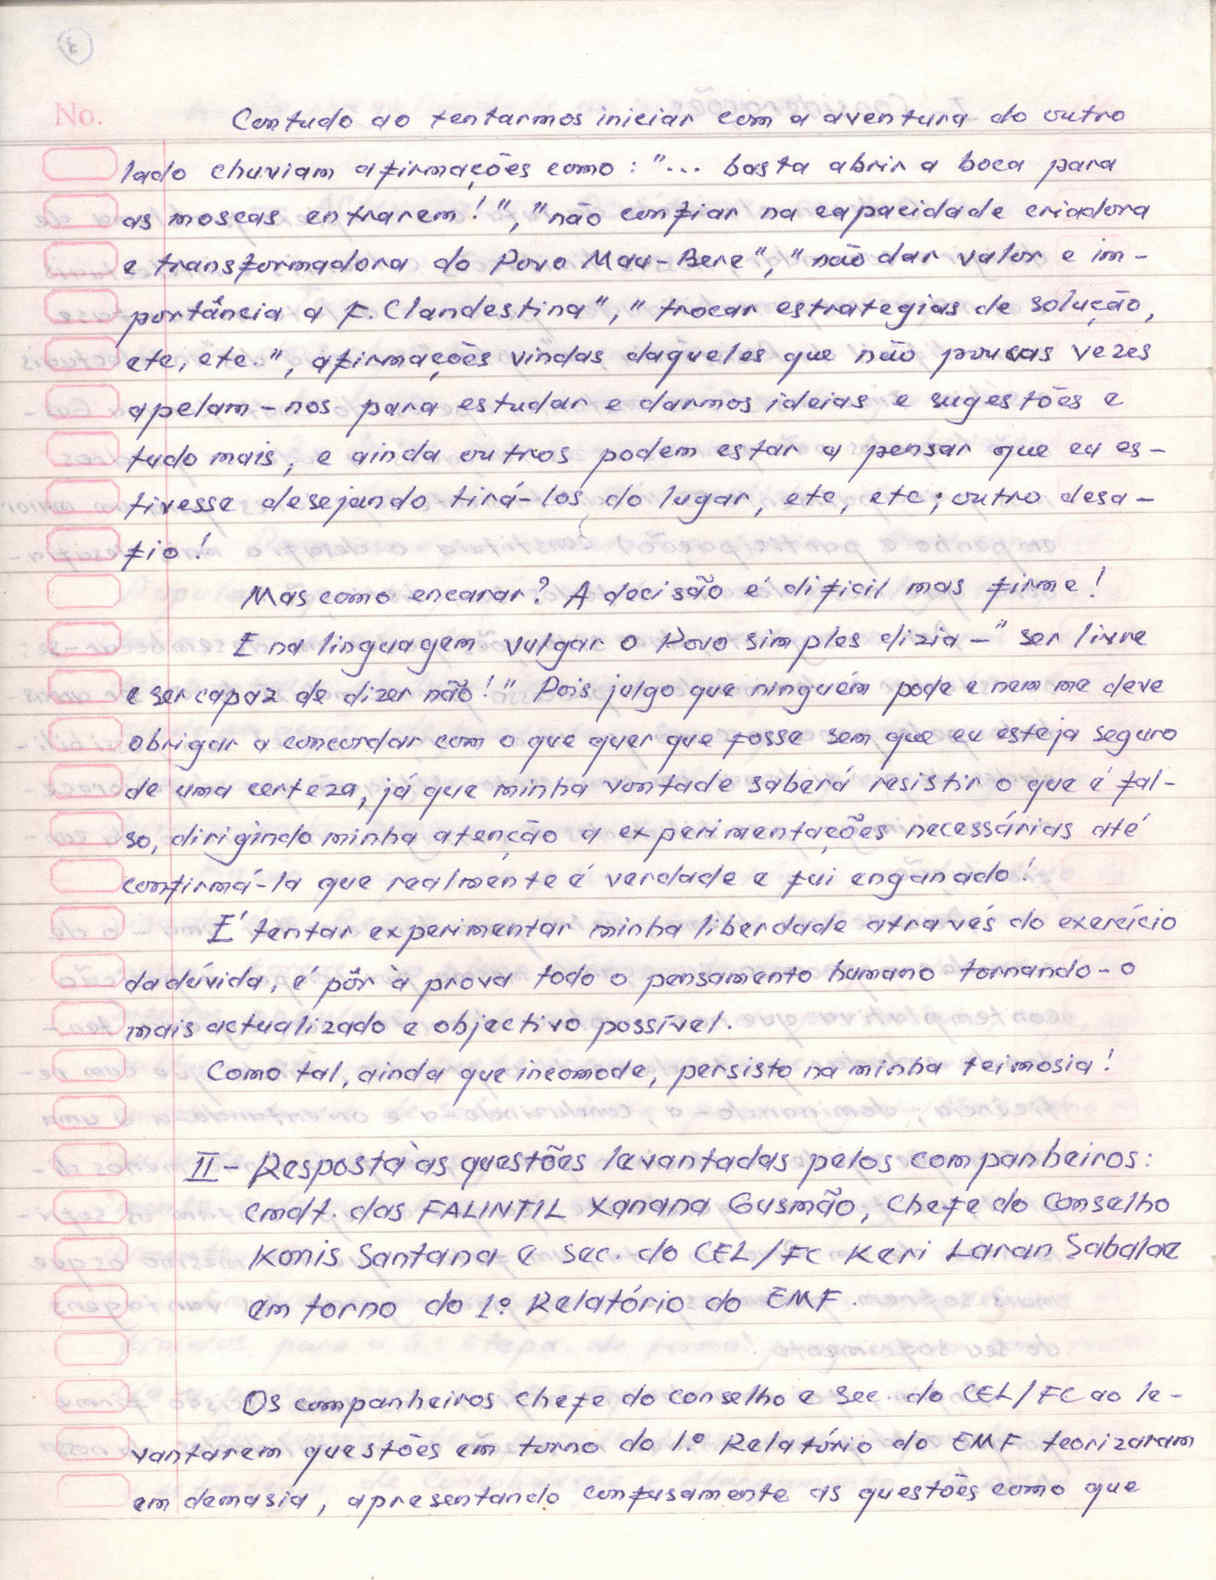 3
No.
Contudo ao tentarmos iniciar com a aventura do outro
lado chuviam afirmações como: "... basta abrir a boca para
as moscas entrarem!", "não confiar na capacidade criadora
e transformadora do Povo Mau-Bere", "não dar valor e im-
portância a F. Clandestina", "trocar estrategias de solução,
etc, etc.", afirmações vindas daqueles que não poucas vezes
apelam-nos para estudar e darmos ideias e sugestões e
tudo mais, e ainda outros podem estar a pensar que eu es-
tivesse desejando tirá-los do lugar, etc, etc; outro desa-
fio!
Mas como encarar? A decisão é dificil mas firme!
E na linguagem vulgar o Povo simples dizia-"ser livre
e ser capaz de dizer não!" Pois julgo que ninguém pode e nem me deve
obrigar a concordar com o que quer que fosse sem que eu esteja seguro
de uma certeza, já que minha vontade saberá resistir o que é fal-
so, dirigindo minha atenção a experimentações necessárias até
confirmá-la que realmente é verdade e fui enganado!
É tentar experimentar minha liberdade através do exercício
da dúvida, é pôr à prova todo o pensamento humano tornando-o
mais actualizado e objectivo possível.
Como tal, ainda que incomode, persisto na minha teimosia!
II- Resposta às questões levantadas pelos companheiros:
Cmdt. das FALINTIL Xanana Gusmão, Chefe do Conselho
Konis Santana e Sec. do CEL/FC Keri Laran Sabalae
em torno do 1.º Relatório do EMF.
Os companheiros chefe do conselho e Sec. do CEL/FC ao le-
vantarem questões em torno do 1.º Relatório do EMF teorizaram
em demasia, apresentando confusamente as questões como que